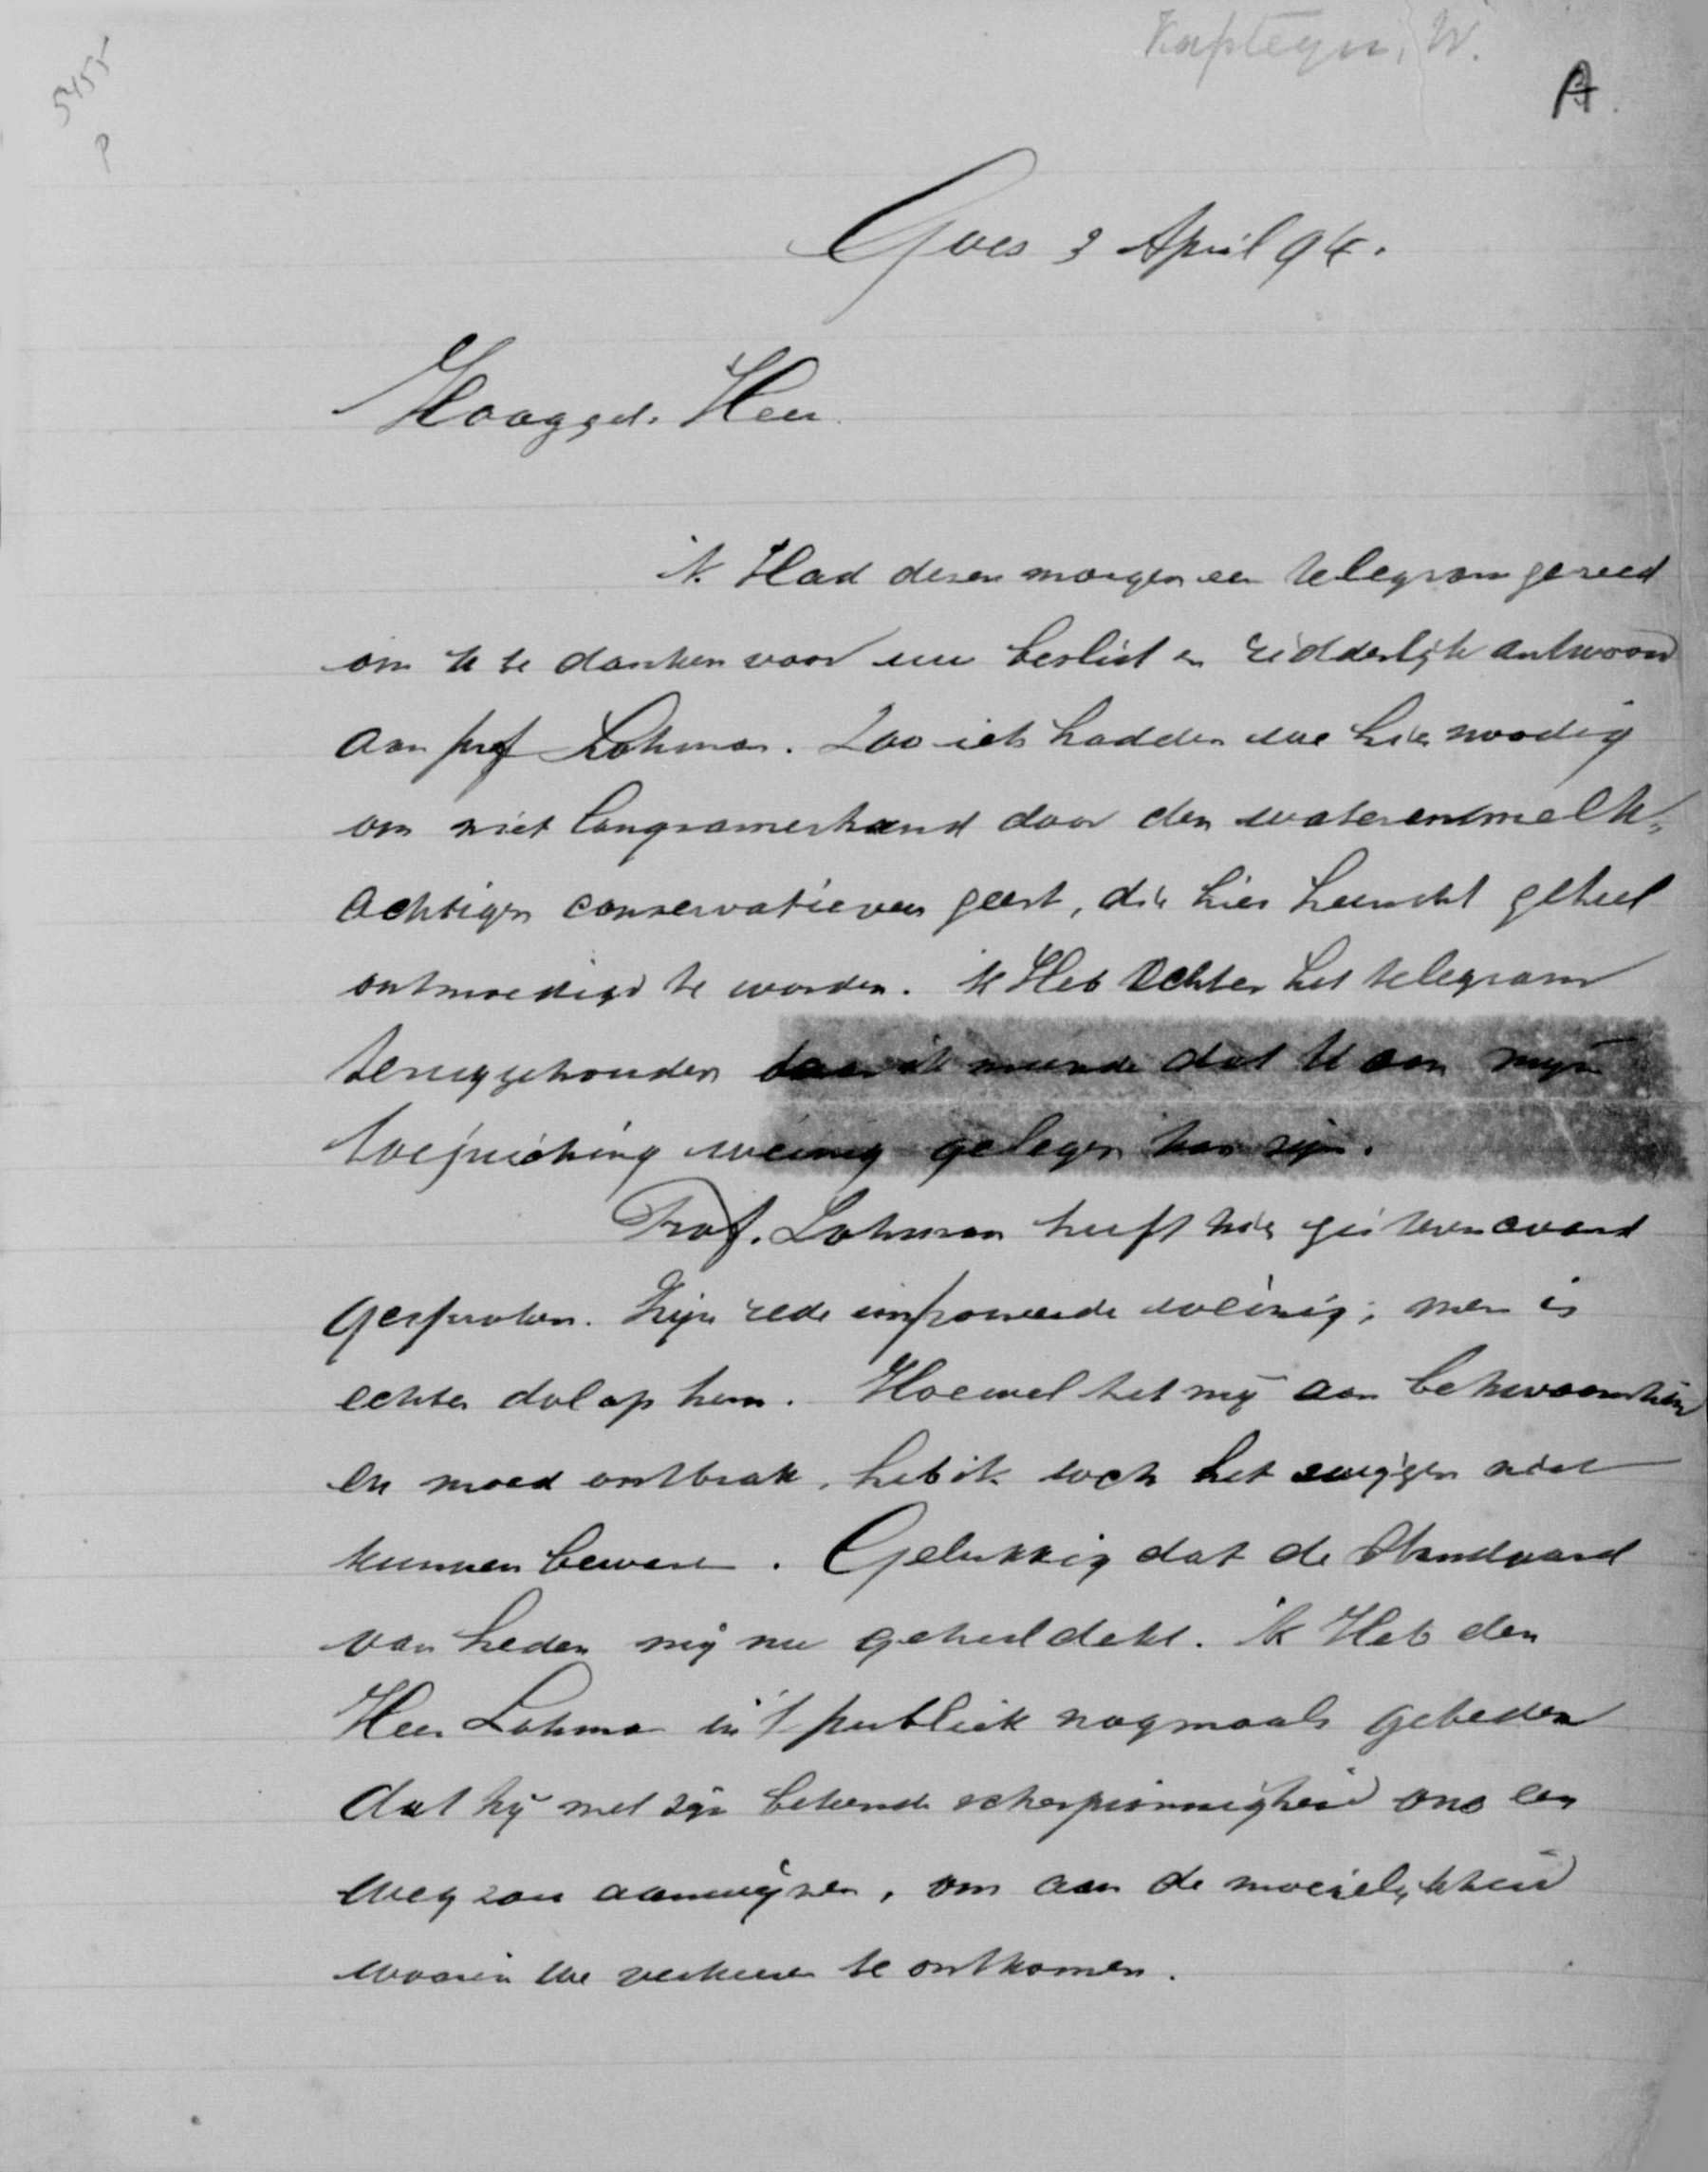 Kapteyn, W.
A.
5455
P
Goes 3 April 94.
Hooggel. Heer
ik Had dezen morgen een telegram gereed
om U te danken voor uw beslist en ridderlijk antwoord
aan prof Lohman. Zoo iets hadden we hier noodig
om niet langzamerhand door den waterenmelk=
achtigen conservatieven geest, die hier heerscht geheel
ontmoedigd te worden. ik Heb Echter het telegram
teruggehouden daar ik meende dat U aan mijn
toejuiching weinig gelegen kan zijn.
Prof. Lohman heeft hier gisterenavond
gesproken. Zijn rede imponeerde weinig; men is
echter dol op hem. Hoewel het mij aan bekwaamheid
en moed ontbrak, heb ik toch het zwijgen niet
kunnen bewaren. Gelukkig dat de Standaard
van heden mij nu geheel dekt. ik Heb den
Heer Lohman in 't publiek nogmaals gebeden
dat hij met zijn bekende scherpzinnigheid ons een
weg zou aanwijzen, om aan de moeielijkheid
waarin we verkeeren te ontkomen.